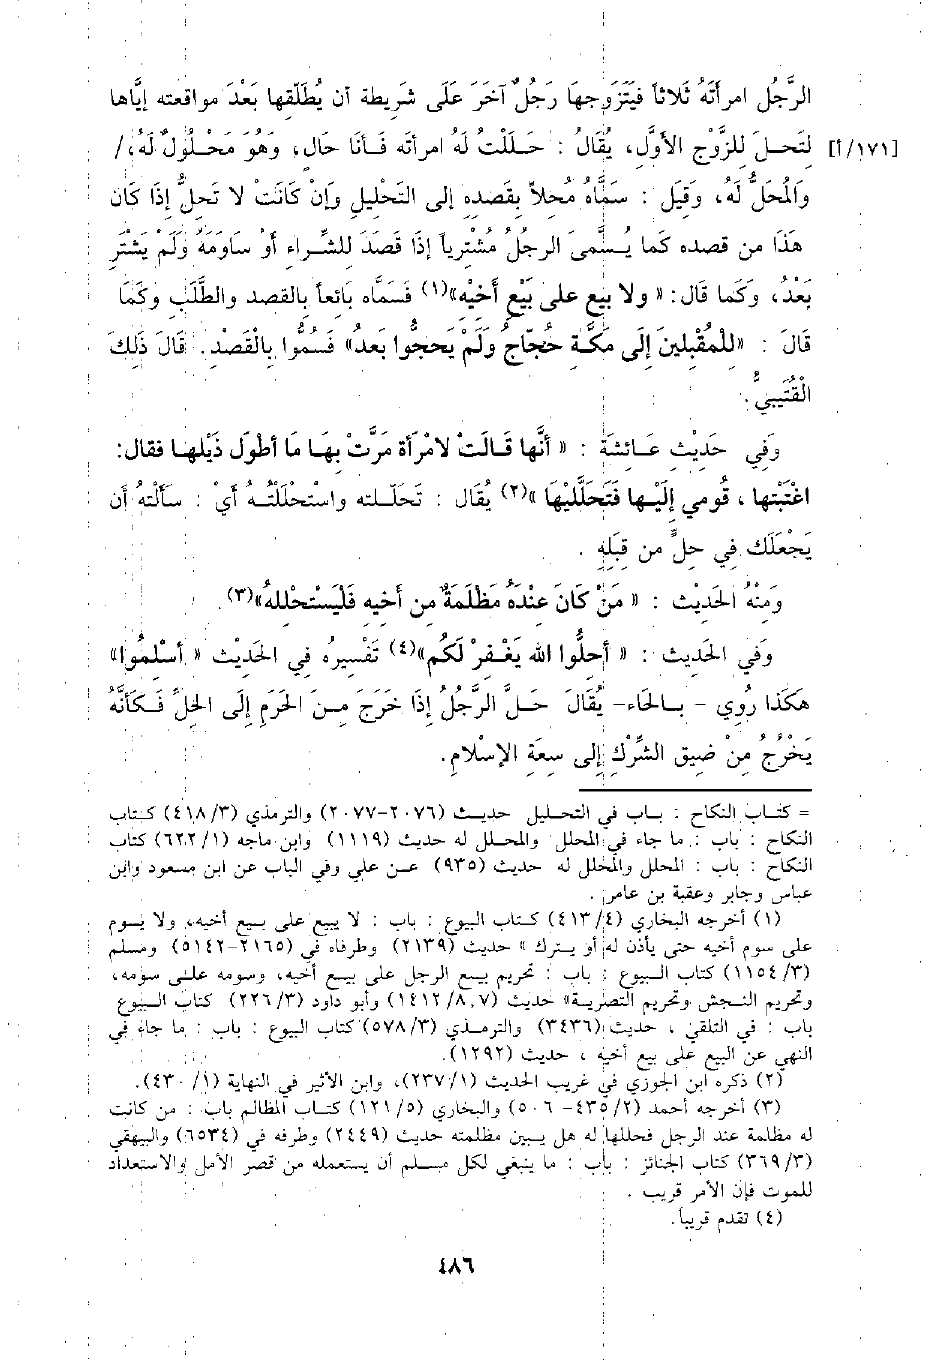 الرَّجُل امرأتَهُ ثَلاثاً فَيَتَزَوجها رَجُلٌ آخَرَ عَلَى شَرِيطة أن يُطَلّقها بَعْدَ مواقعته إيَّاها
لتَحـلَ للزَّوْج الأوَّل، يُقَالُ : حَـلَلْتُ لَهُ امرأته فَـأنَا حال، وَهُوَ مَحْـلُولٌ لَهُ،/ [١٧١/أ]
والمُحَلُّ لَهُ، وَقيَل : سَمَّاهُ مُحلاً بقَصْده إلى التَحْليل وإنْ كَانَتْ لا تَحلُّ إذَا كَان
هَذَا من قصْده كَما يُسَمَّى الرجلُ مُشْترياً إذَا قَصَدَ للشِّراء أوْ سَاوَمَهُ وَلَمْ يَشْتَر
بَعْدُ، وَكَما قال: « ولا بيع على بَيْعِ أَخيْه»(١) فَسَمَّاه بَائعاً بالقصد والطَّلَب وكَمَا
قَالَ : «للْمُقْبلينَ إلَى مَكَّة حُجّاجُ وَلَمْ يَحجُّوا بَعد» فَسُمُّوا بالْقَصْد. قَالَ ذَلكَ
القُتَيبيُّ.
وَفِي حَديْث عَـائشَة : « أنَّها قَـالَتْ لامْرَأة مَرَّتْ بهَـا مَا أطْوَل ذَيْلهـا فقال:
اغْتَبْتها ، قُومي إلَيْـها فَتَحَلَّليْهَا »(٢) يُقَال : تَحَلّـلته واسْتْحلَلْتُـهُ أيْ : سَألتْهُ أن
يَجْعَلَك فِي حلٍّ من قبَله .
وَمنْهُ الحَديْث : « مَنْ كَانَ عنْدَهُ مَظْلَمَةٌ من أخيه فَلْيَسْتْحْلله»(٣).
وَفي الحَديث : « أحلُّوا الله يَغْفرْ لَكُم»(٤) تَفْسيرُه فِي الحَديْث « أسْلمُوا»
هكَذا رُوي - بـالحَاء- يُقَالَ حَـلَّ الرَّجلُ إذَا خَرَجَ مـنَ الحَرَمِ إلَى الحلِّ فَـكَأنَّهُ
يَخْرُجُ مِنْ ضيق الشِّرْك إلى سعَة الإسْلامِ.
= كتـاب النكاح : باب في التحليل حديث (٢٠٧٦-٢٠٧٧) والترمذي (٤١٨/٣) كتـاب
النكاح : باب : ما جاء في المحلل والمحـلل له حديث (١١١٩) وابن ماجه (٦٢٢/١) كتاب
النكاح : باب : المحلل والمحلل له حديث (٩٣٥) عـن علي وفي الباب عن ابن مسعود وابن
عباس وجابر وعقبة بن عامر .
(١) أخرجه البخاري (٤١٣/٤) كتـاب البيوع : باب : لا يبيع على بـيع أخيه، ولا يـسوم
على سوم أخيه حتى يأذن له أو يـترك » حديث (٢١٣٩) وطرفاه في (٢١٦٥-٥١٤٢) ومسلم
(١١٥٤/٣) كتاب الـبيوع : باب : تحريم بيـع الرجل على بيـع أخيه، وسومه علـى سومه،
وتحريم النـجش وتحريم التصريـة» حديث (١٤١٢/٨,٧) وأبو داود (٢٢٦/٣) كتاب الـبيوع
باب : في التلقي ، حديث (٣٤٣٦) والترمـذي (٥٧٨/٣) كتاب البيوع : باب : ما جاء في
النهي عن البيع على بيع أخيه ، حديث (١٢٩٢).
(٢) ذكره ابن الجوزي في غريب الحديث (٢٣٧/١)، وابن الأثير في النهاية (١/ ٤٣٠).
(٣) أخرجه أحمد (٢/ ٤٣٥- ٥٠٦) والبخاري (١٢١/٥) كتـاب المظالم باب : من كانت
له مظلمة عند الرجل فحللها له هل يـبين مظلمته حديث (٢٤٤٩) وطرفه في (٦٥٣٤) والبيهقي
(٣٦٩/٣) كتاب الجنائز : باب : ما ينبغي لكل مسـلم أن يستعمله من قصر الأمل والاستعداد
للموت فإن الأمر قريب .
(٤) تقدم قريباً.
٤٨٦